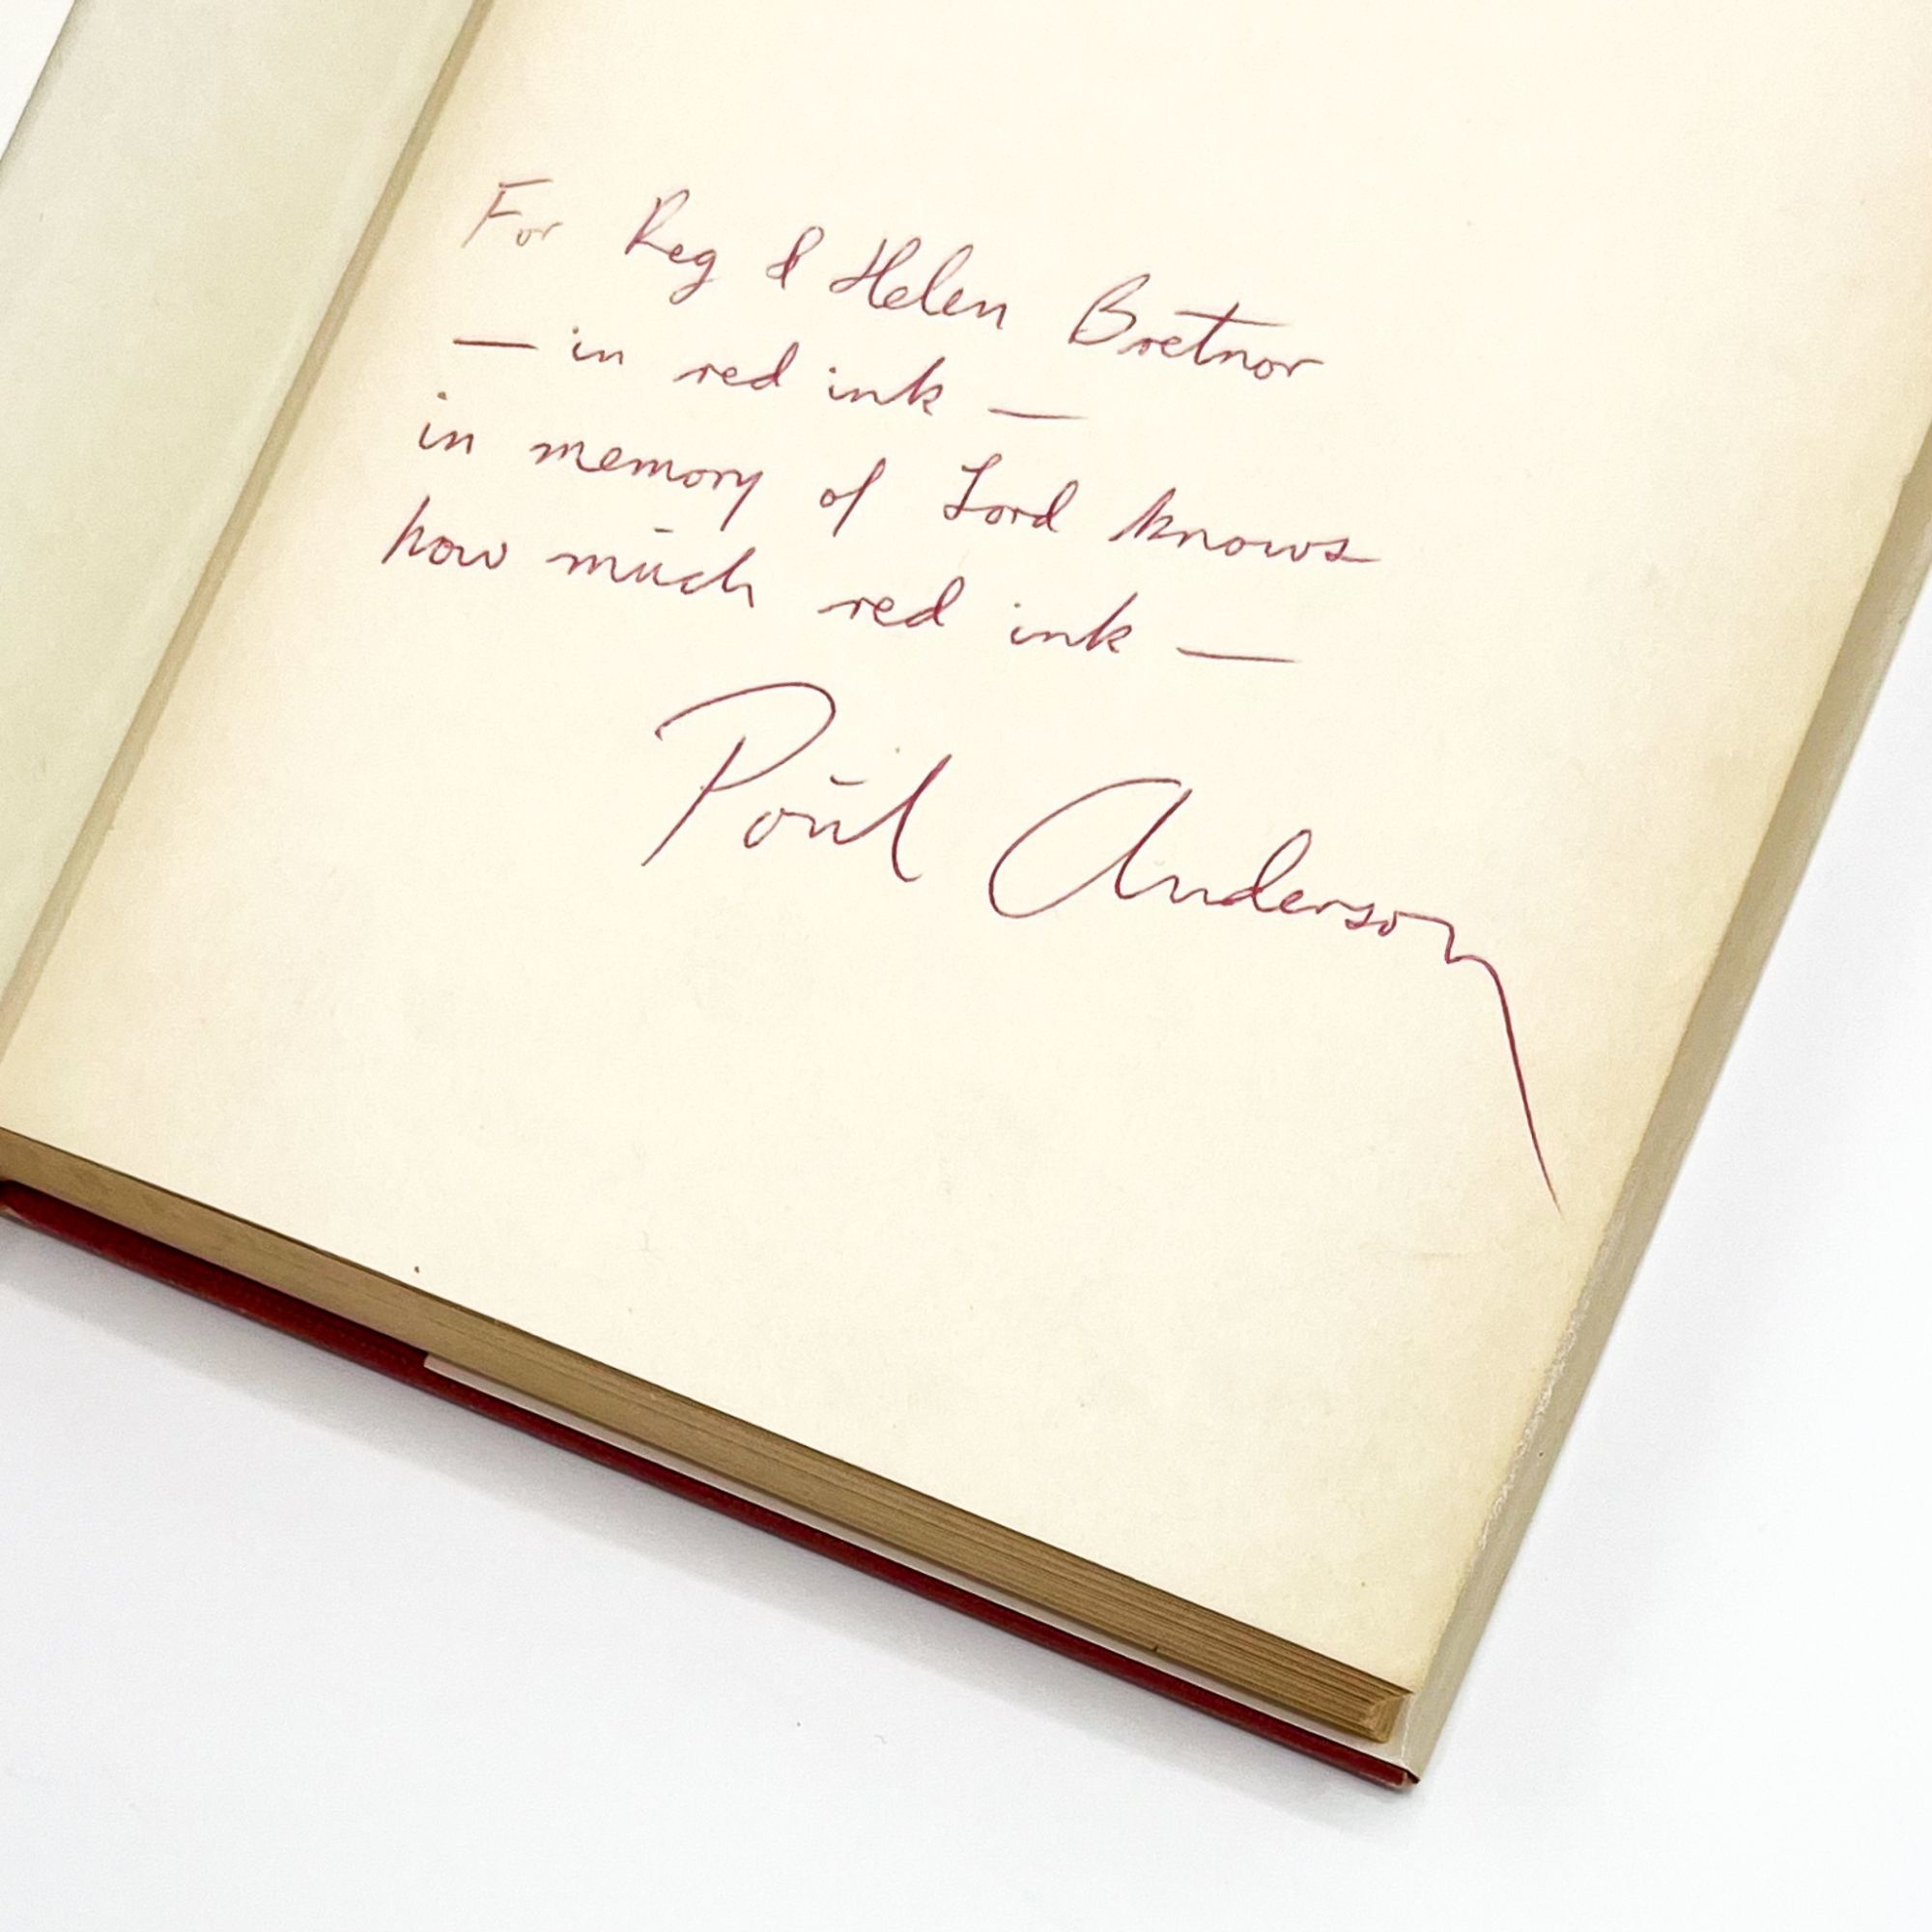 For Reg & Helen Bretnor
— in red ink —
in memory of Lord knows
how much red ink —
Poul Anderson